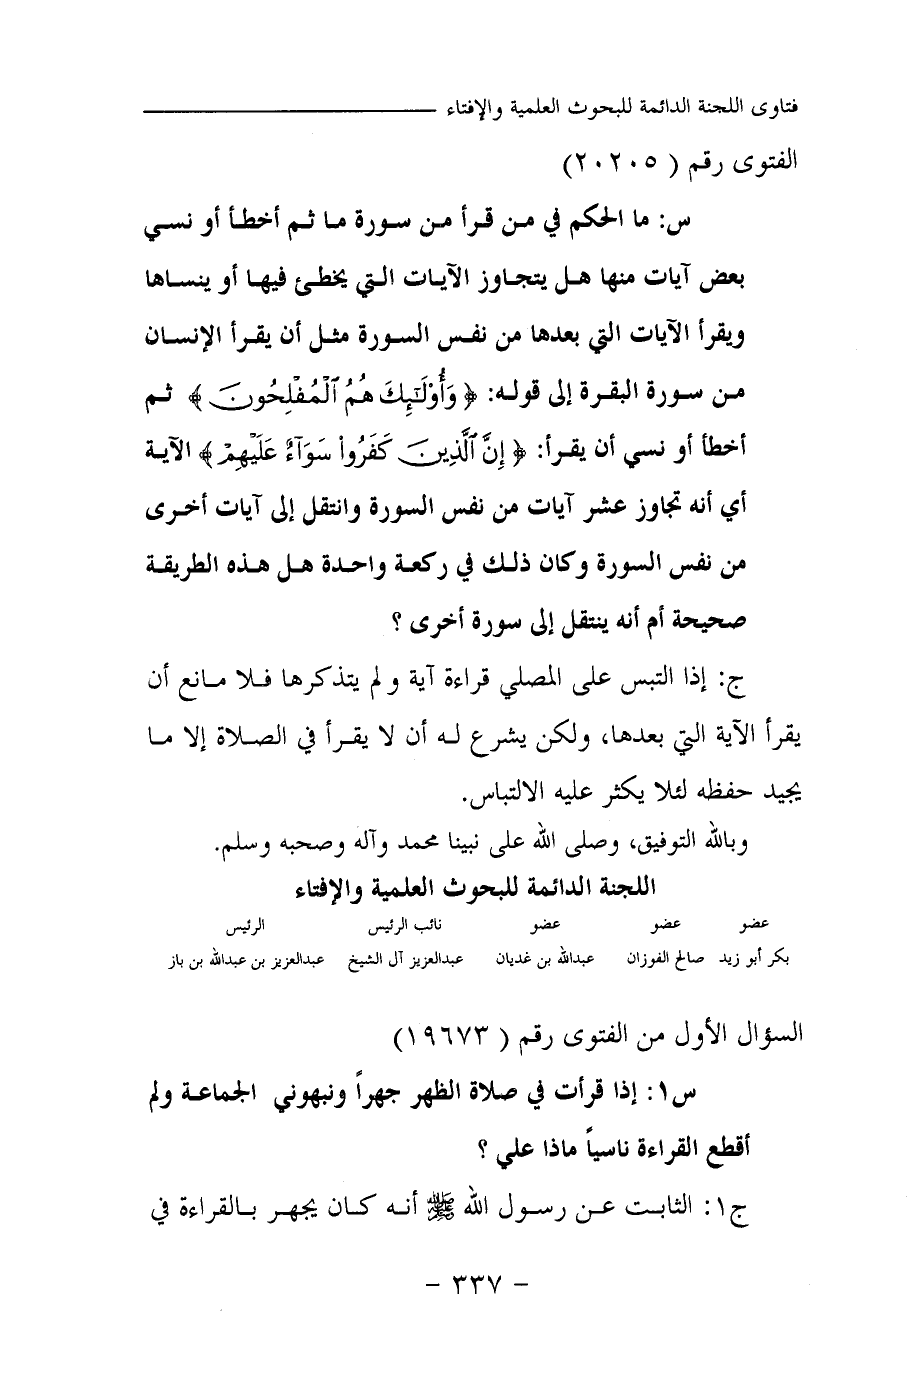 فتاوى اللجنة الدائمة للبحوث العلمية والإفتاء
الفتوى رقم ( ٢٠٢٠٥)
س: ما الحكم في من قرأ من سورة ما ثم أخطأ أو نسي
بعض آيات منها هل يتجاوز الآيات التي يخطئ فيها أو ينساها
ويقرأ الآيات التي بعدها من نفس السورة مثل أن يقرأ الإنسان
من سورة البقرة إلى قوله: ﴿ وَأُوْلَٰٓئِكَ هُمُ ٱلْمُفْلِحُونَ ﴾ ثم
أخطأ أو نسي أن يقرأ: ﴿ إِنَّ ٱلَّذِينَ كَفَرُوا۟ سَوَآءٌ عَلَيْهِمْ ﴾ الآية
أي أنه تجاوز عشر آيات من نفس السورة وانتقل إلى آيات أخرى
من نفس السورة وكان ذلك في ركعة واحدة هل هذه الطريقة
صحيحة أم أنه ينتقل إلى سورة أخرى ؟
ج: إذا التبس على المصلي قراءة آية ولم يتذكرها فلا مانع أن
يقرأ الآية التي بعدها، ولكن يشرع له أن لا يقرأ في الصلاة إلا ما
يجيد حفظه لئلا يكثر عليه الالتباس.
وبالله التوفيق، وصلى الله على نبينا محمد وآله وصحبه وسلم.
اللجنة الدائمة للبحوث العلمية والإفتاء
عضو عضو عضو نائب الرئيس الرئيس
بكر أبو زيد صالح الفوزان عبدالله بن غديان عبدالعزيز آل الشيخ عبدالعزيز بن عبدالله بن باز
السؤال الأول من الفتوى رقم ( ١٩٦٧٣)
س١: إذا قرأت في صلاة الظهر جهراً ونبهوني الجماعة ولم
أقطع القراءة ناسياً ماذا علي ؟
ج١: الثابت عن رسول الله ﷺ أنه كان يجهر بالقراءة في
- ٣٣٧ -